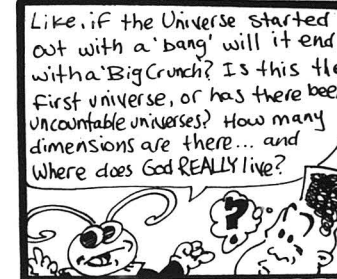 Like, if the Universe started
out with a 'bang' will it end
with a 'Big Crunch? Is this the
first universe, or has there bee
uncountable universes? How many
dimensions are there... and
Where does God REALLY live?
?